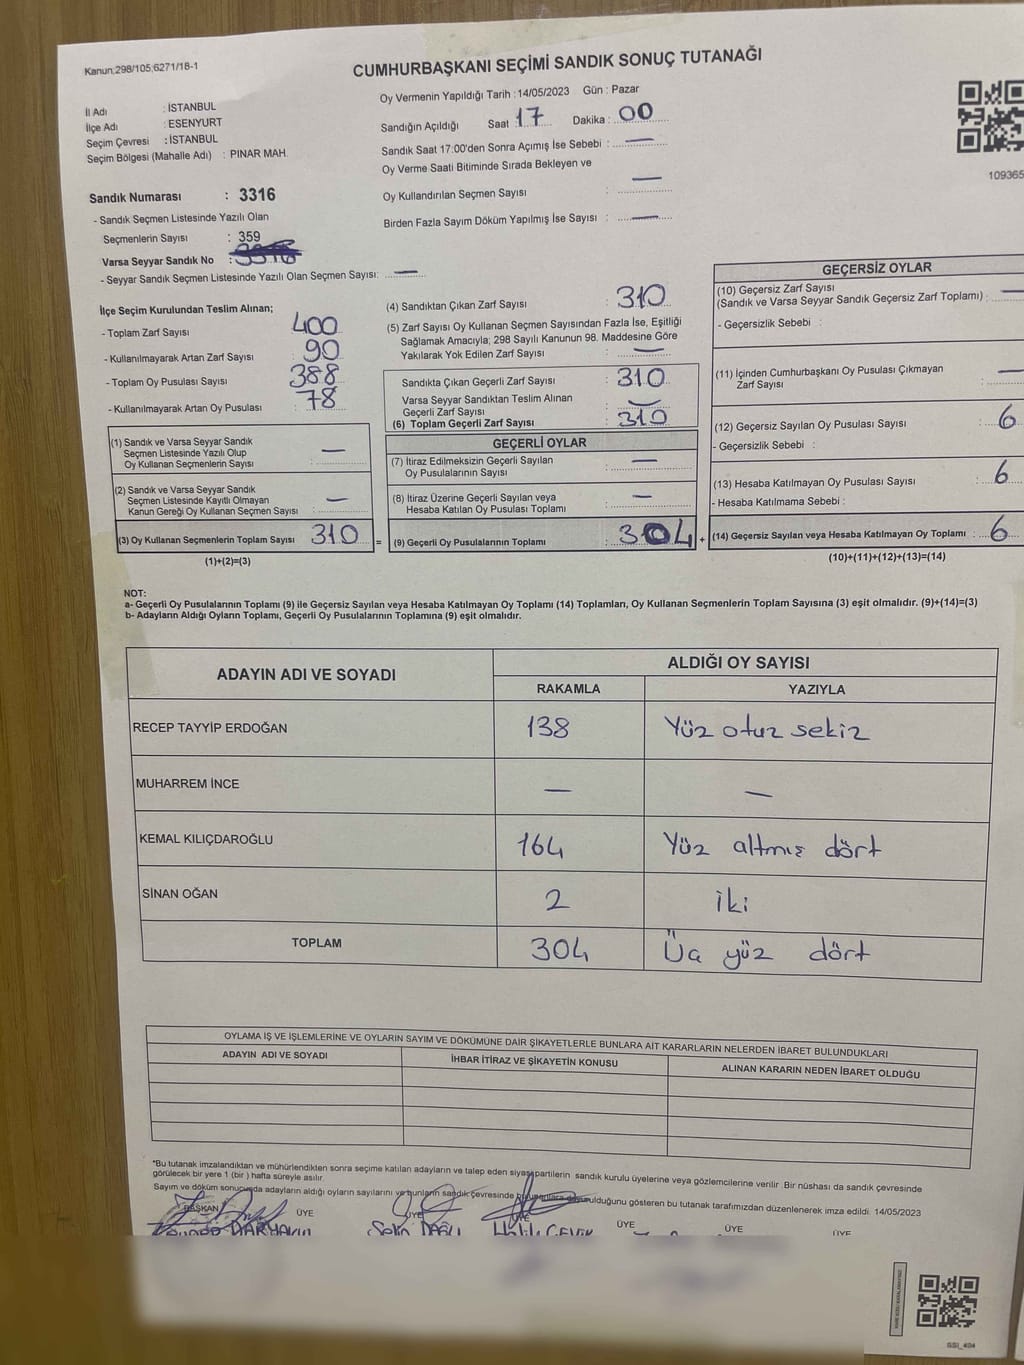 Kanun;298/105;6271/18-1
CUMHURBAŞKANI SEÇİMİ SANDIK SONUÇ TUTANAĞI
İl Adı : İSTANBUL
İlçe Adı : ESENYURT
Seçim Çevresi : İSTANBUL
Seçim Bölgesi (Mahalle Adı) : PINAR MAH.
Oy Vermenin Yapıldığı Tarih : 14/05/2023 Gün : Pazar
Sandığın Açıldığı Saat : 17 Dakika : 00
Sandık Saat 17:00'den Sonra Açımış İse Sebebi : —
Oy Verme Saati Bitiminde Sırada Bekleyen ve
Oy Kullandırılan Seçmen Sayısı : —
Birden Fazla Sayım Döküm Yapılmış İse Sayısı : —
109365
Sandık Numarası : 3316
- Sandık Seçmen Listesinde Yazılı Olan
Seçmenlerin Sayısı : 359
Varsa Seyyar Sandık No :
- Seyyar Sandık Seçmen Listesinde Yazılı Olan Seçmen Sayısı: —
İlçe Seçim Kurulundan Teslim Alınan;
- Toplam Zarf Sayısı : 400
- Kullanılmayarak Artan Zarf Sayısı : 90
- Toplam Oy Pusulası Sayısı : 388
- Kullanılmayarak Artan Oy Pusulası : 78
(1) Sandık ve Varsa Seyyar Sandık
Seçmen Listesinde Yazılı Olup
Oy Kullanan Seçmenlerin Sayısı : —
(2) Sandık ve Varsa Seyyar Sandık
Seçmen Listesinde Kayıtlı Olmayan
Kanun Gereği Oy Kullanan Seçmen Sayısı : —
(3) Oy Kullanan Seçmenlerin Toplam Sayısı : 310 =
(1)+(2)=(3)
(4) Sandıktan Çıkan Zarf Sayısı : 310
(5) Zarf Sayısı Oy Kullanan Seçmen Sayısından Fazla İse, Eşitliği
Sağlamak Amacıyla; 298 Sayılı Kanunun 98. Maddesine Göre
Yakılarak Yok Edilen Zarf Sayısı : —
Sandıkta Çıkan Geçerli Zarf Sayısı : 310
Varsa Seyyar Sandıktan Teslim Alınan
Geçerli Zarf Sayısı : —
(6) Toplam Geçerli Zarf Sayısı : 310
GEÇERLİ OYLAR
(7) İtiraz Edilmeksizin Geçerli Sayılan
Oy Pusulalarının Sayısı : —
(8) İtiraz Üzerine Geçerli Sayılan veya
Hesaba Katılan Oy Pusulası Toplamı : —
(9) Geçerli Oy Pusulalarının Toplamı : 304 +
GEÇERSİZ OYLAR
(10) Geçersiz Zarf Sayısı
(Sandık ve Varsa Seyyar Sandık Geçersiz Zarf Toplamı) : —
- Geçersizlik Sebebi :
(11) İçinden Cumhurbaşkanı Oy Pusulası Çıkmayan
Zarf Sayısı : —
(12) Geçersiz Sayılan Oy Pusulası Sayısı : 6
- Geçersizlik Sebebi :
(13) Hesaba Katılmayan Oy Pusulası Sayısı : 6
- Hesaba Katılmama Sebebi :
(14) Geçersiz Sayılan veya Hesaba Katılmayan Oy Toplamı : 6
(10)+(11)+(12)+(13)=(14)
NOT:
a- Geçerli Oy Pusulalarının Toplamı (9) ile Geçersiz Sayılan veya Hesaba Katılmayan Oy Toplamı (14) Toplamları, Oy Kullanan Seçmenlerin Toplam Sayısına (3) eşit olmalıdır. (9)+(14)=(3)
b- Adayların Aldığı Oyların Toplamı, Geçerli Oy Pusulalarının Toplamına (9) eşit olmalıdır.
ADAYIN ADI VE SOYADI
ALDIĞI OY SAYISI
RAKAMLA YAZIYLA
RECEP TAYYİP ERDOĞAN 138 Yüz otuz sekiz
MUHARREM İNCE — —
KEMAL KILIÇDAROĞLU 164 Yüz altmış dört
SİNAN OĞAN 2 iki
TOPLAM 304 Üç yüz dört
OYLAMA İŞ VE İŞLEMLERİNE VE OYLARIN SAYIM VE DÖKÜMÜNE DAİR ŞİKAYETLERLE BUNLARA AİT KARARLARIN NELERDEN İBARET BULUNDUKLARI
ADAYIN ADI VE SOYADI İHBAR İTİRAZ VE ŞİKAYETİN KONUSU ALINAN KARARIN NEDEN İBARET OLDUĞU
*Bu tutanak imzalandıktan ve mühürlendikten sonra seçime katılan adayların ve talep eden siyasi partilerin sandık kurulu üyelerine veya gözlemcilerine verilir. Bir nüshası da sandık çevresinde
görülecek bir yere 1 (bir) hafta süreyle asılır.
Sayım ve döküm sonucunda adayların aldığı oyların sayılarını ve bunların sandık çevresinde olduğunu gösteren bu tutanak tarafımızdan düzenlenerek imza edildi. 14/05/2023
BAŞKAN ÜYE ÜYE ÜYE ÜYE ÜYE ÜYE
Selin